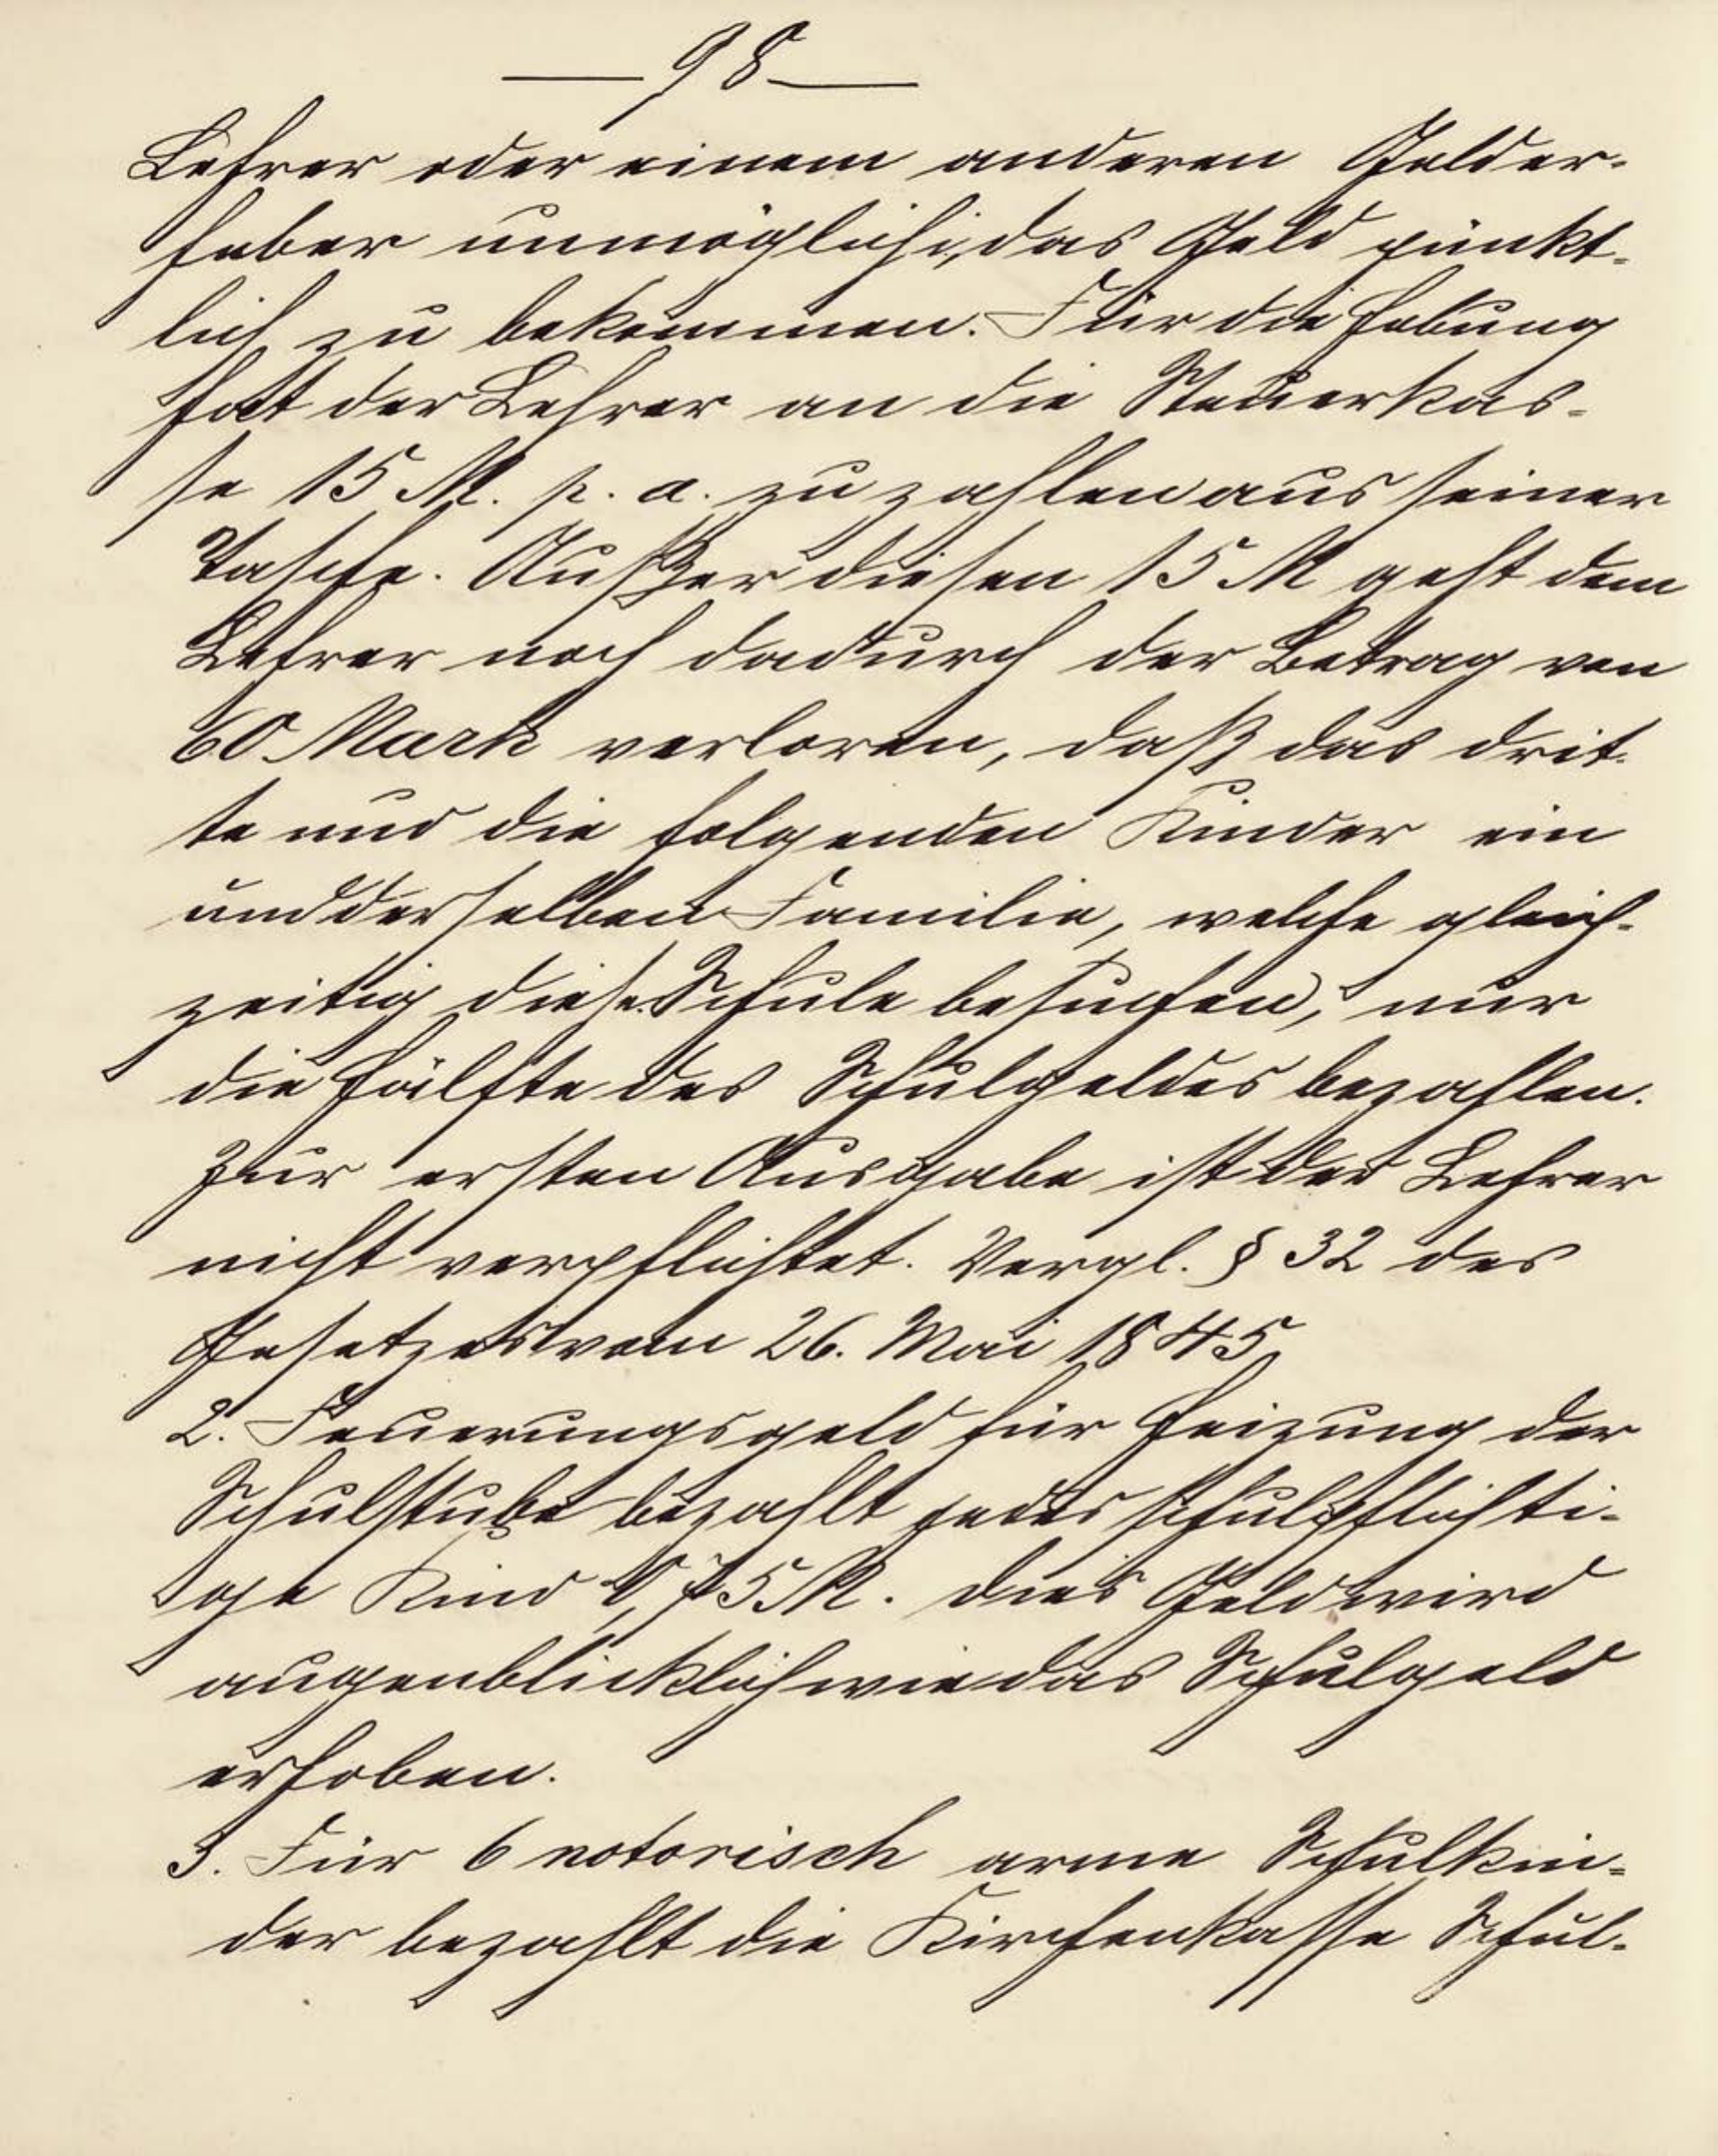 — 98 —
Lehrer oder einem anderen Gelder-
heber unmöglich, das Geld pünkt-
lich zu bekommen. Für die Hebung
hat der Lehrer an die Steuerkas-
se 15 M. p. a. zu zahlen aus seiner
Tasche. Außer diesen 15 M geht dem
Lehrer noch dadurch der Betrag von
60 Mark verloren, daß das drit-
te und die folgenden Kinder ein
und derselben Familie, welche gleich-
zeitig diese Schule besuchen, nur
die Hälfte des Schulgeldes bezahlen.
Zur ersten Ausgabe ist der Lehrer
nicht verpflichtet. Vergl. § 32 des
Gesetzes vom 26. Mai 1845.
2. Feuerungsgeld für Heizung der
Schulstube bezahlt jedes schulpflichti-
ge Kind 0,75 M. Dies Geld wird
augenblicklich wie das Schulgeld
erhoben.
3. Für 6 notorisch arme Schulkin-
der bezahlt die Kirchenkasse Schul-